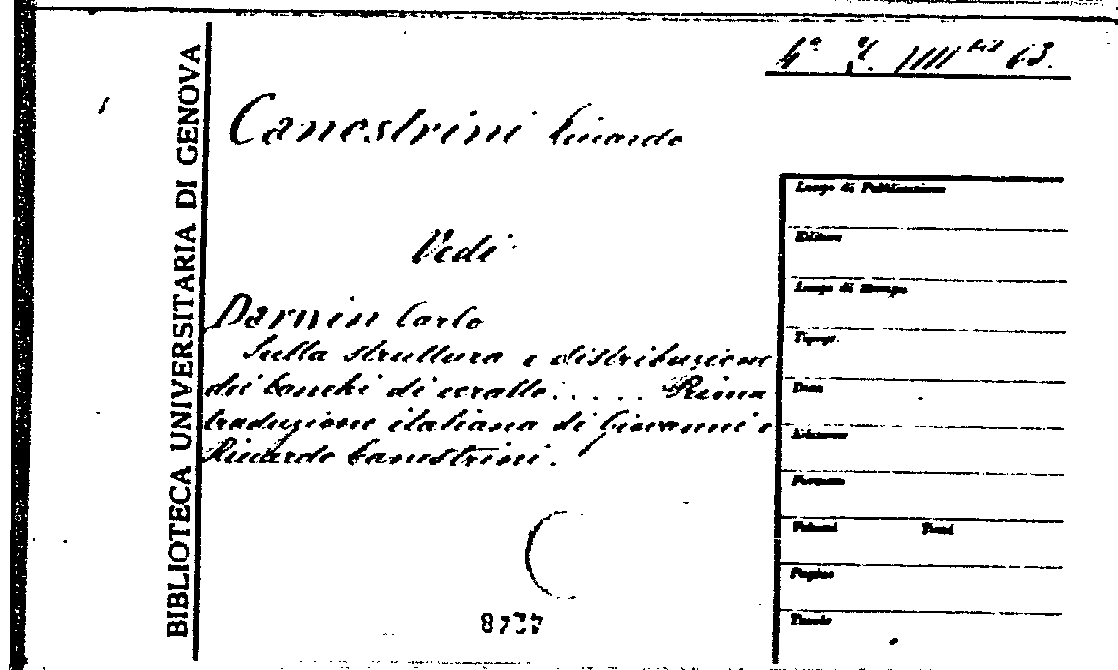 BIBLIOTECA UNIVERSITARIA DI GENOVA
Canestrini Riccardo
Vedi
Darwin Carlo
Sulla struttura e distribuzione
dei banchi di corallo..... Prima
traduzione italiana di Giovanni e
Riccardo Canestrini.
Luogo di Pubblicazione
Editore
Luogo di Stampa
Tipogr.
Data
Edizione
Formato
Volumi Tomi
Pagine
Tavole